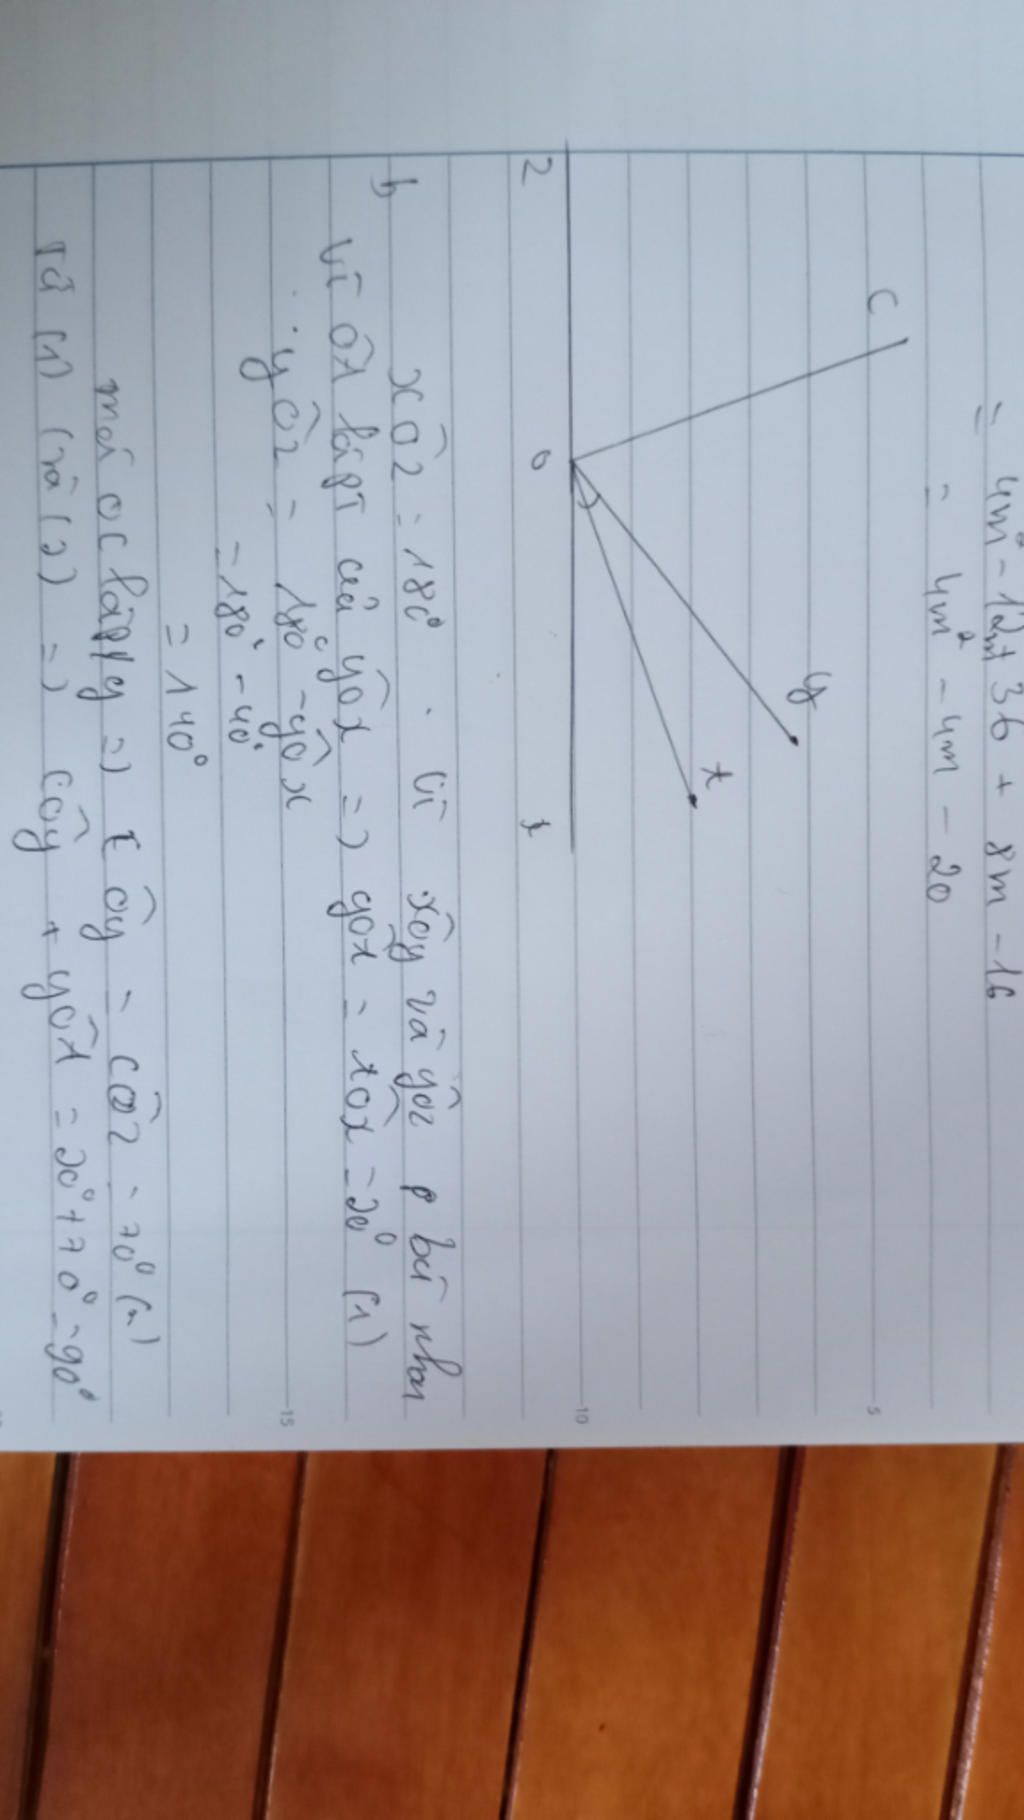 = 4m² - 12m + 36 + 8m - 16
= 4m² - 4m - 20
5
C
y
t
10
z
O
x
b
xÔz = 180° . Vì xÔy và yÔz bù nhau
Vì Ot là pt của yÔx => yÔt = tÔx = 20° (1)
yÔz = 180° - yÔx
15
= 180° - 40°
= 140°
mà oc là => CÔy = CÔz = 70° (2)
Từ (1) và (2) => CÔy + yÔt = 20° + 70° = 90°